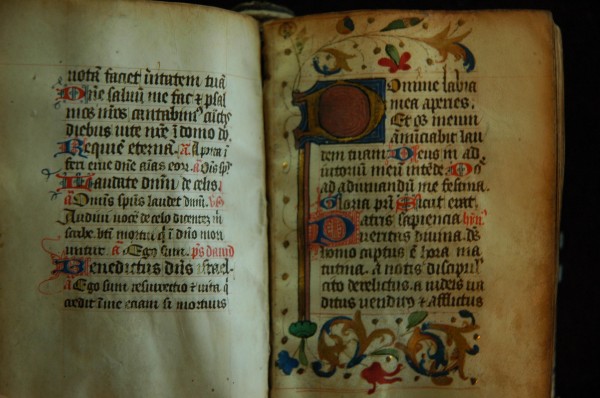 uota faciet ūitatem tuā
Dn̄e saluū me fac & psal
mos nr̄os cantabim⁹ cūctis
diebus uite nr̄e ī domo dn̄i
Requiē eternā. a. A porta ī
feri erue dn̄e aīas eor̄. a Oīs sps̄
Laudate dn̄m de celis.
a Omīs spūs laudet dn̄m. vs̄
Audiui uocē de celo dicentē m̄
scribe. bt̄i mortui q̄ ī dn̄o mori
untur. a Ego sum. ps dauid
Benedictus dn̄s israel.
a Ego sum resurrectio & uita q̄
credit ī me etiam si mortuus
Domine labia
mea aperies.
Et os meum
ānūciabit lau
dem tuam. Deus in ad
iutoriū meū intēde. Dn̄e
ad adiuuandū me festina.
Gloria pr̄i. Sicut erat.
Patris sapiencia hym̄
ueritas diuina. de⁹
homo captus ē hora ma
tutina. a notis discipul̄
cito derelictus. a iudeis ua
ditus uendit⁹ & afflictus